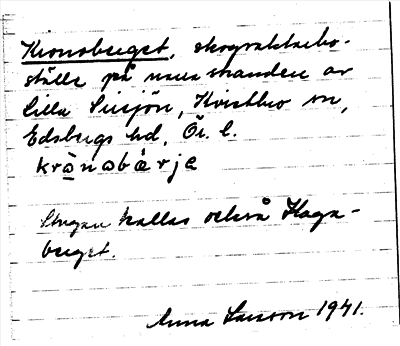 Kronoberget, skogvaktarbo-
ställe på norra stranden av
lilla Sirsjön, Kvistbro sn,
Edsbergs hd, Ör. l.
krònabæ̀rje
Stugan kallas också Haga-
berget.
Anna Larsson 1941.